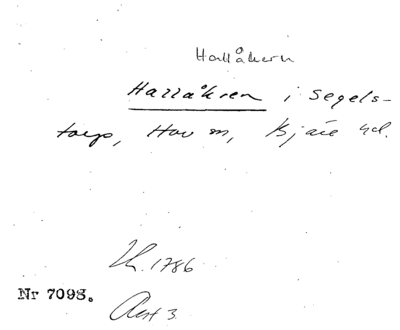 Hallåkern
Hallåkren i Segels-
torp, Hov sn, Bjäre hd.
Lh. 1786
Nr 7098.
Akt 3